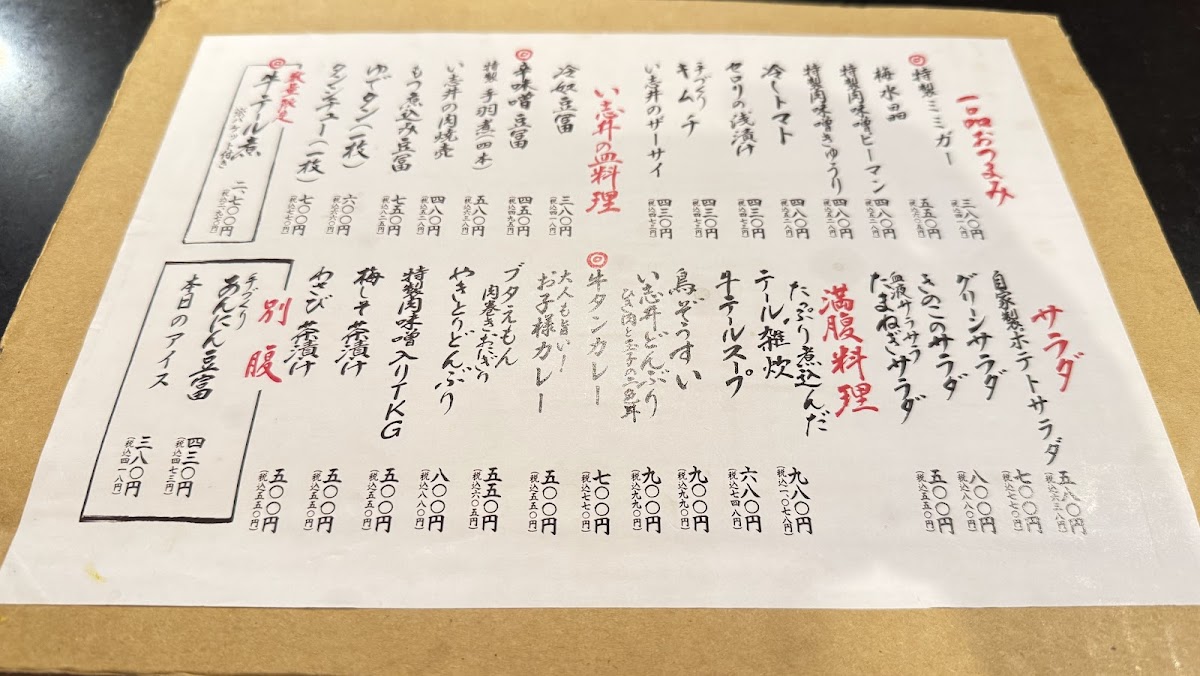 一品おつまみ
◎特製ミミガー
三八〇円
(税込四一八円)
梅水晶
五五〇円
(税込六〇五円)
特製肉味噌ピーマン
四八〇円
(税込五二八円)
特製肉味噌きゅうり
四八〇円
(税込五二八円)
冷しトマト
四八〇円
(税込五二八円)
セロリの浅漬け
四三〇円
(税込四七三円)
手づくり
キムチ
四三〇円
(税込四七三円)
い志井のザーサイ
四三〇円
(税込四七三円)
い志井の皿料理
冷奴豆冨
三八〇円
(税込四一八円)
◎辛味噌豆冨
四五〇円
(税込四九五円)
特製手羽煮(四本)
五八〇円
(税込六三八円)
い志井の肉焼売
四八〇円
(税込五二八円)
もつ煮込み豆冨
七五〇円
(税込八二五円)
ゆでタン(一枚)
六〇〇円
(税込六六〇円)
タンシチュー(一枚)
七〇〇円
(税込七七〇円)
数量限定
◎牛テール煮
※バケット付き
二、七〇〇円
(税込二、九七〇円)
サラダ
自家製ポテトサラダ
五八〇円
(税込六三八円)
グリーンサラダ
七〇〇円
(税込七七〇円)
きのこのサラダ
八〇〇円
(税込八八〇円)
血液サラサラ
たまねぎサラダ
五〇〇円
(税込五五〇円)
満腹料理
たっぷり煮込んだ
テール雑炊
九八〇円
(税込一、〇七八円)
牛テールスープ
六八〇円
(税込七四八円)
鳥ぞうすい
九〇〇円
(税込九九〇円)
い志井どんぶり
ひき肉と玉子の二色丼
九〇〇円
(税込九九〇円)
◎牛タンカレー
七〇〇円
(税込七七〇円)
大人も旨い!
お子様カレー
五〇〇円
(税込五五〇円)
ブタえもん
肉巻きおにぎり
五五〇円
(税込六〇五円)
やきとりどんぶり
八〇〇円
(税込八八〇円)
特製肉味噌入りTKG
五〇〇円
(税込五五〇円)
梅しそ茶漬け
五〇〇円
(税込五五〇円)
わさび茶漬け
五〇〇円
(税込五五〇円)
別腹
手づくり
あんにん豆冨
四三〇円
(税込四七三円)
本日のアイス
三八〇円
(税込四一八円)